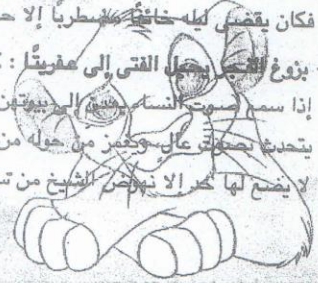 فكان يقضي ليله خائفًا مضطربًا إلا حـ
- بزوغ الفجر يحول الفتى إلى عفريتًا :
إذا سمع صوت النساء يعدن إلى بيوتهن
يتحدث بصوت عال ويغمز من حوله من
لا يضع لها حد إلا نهوض الشيخ من